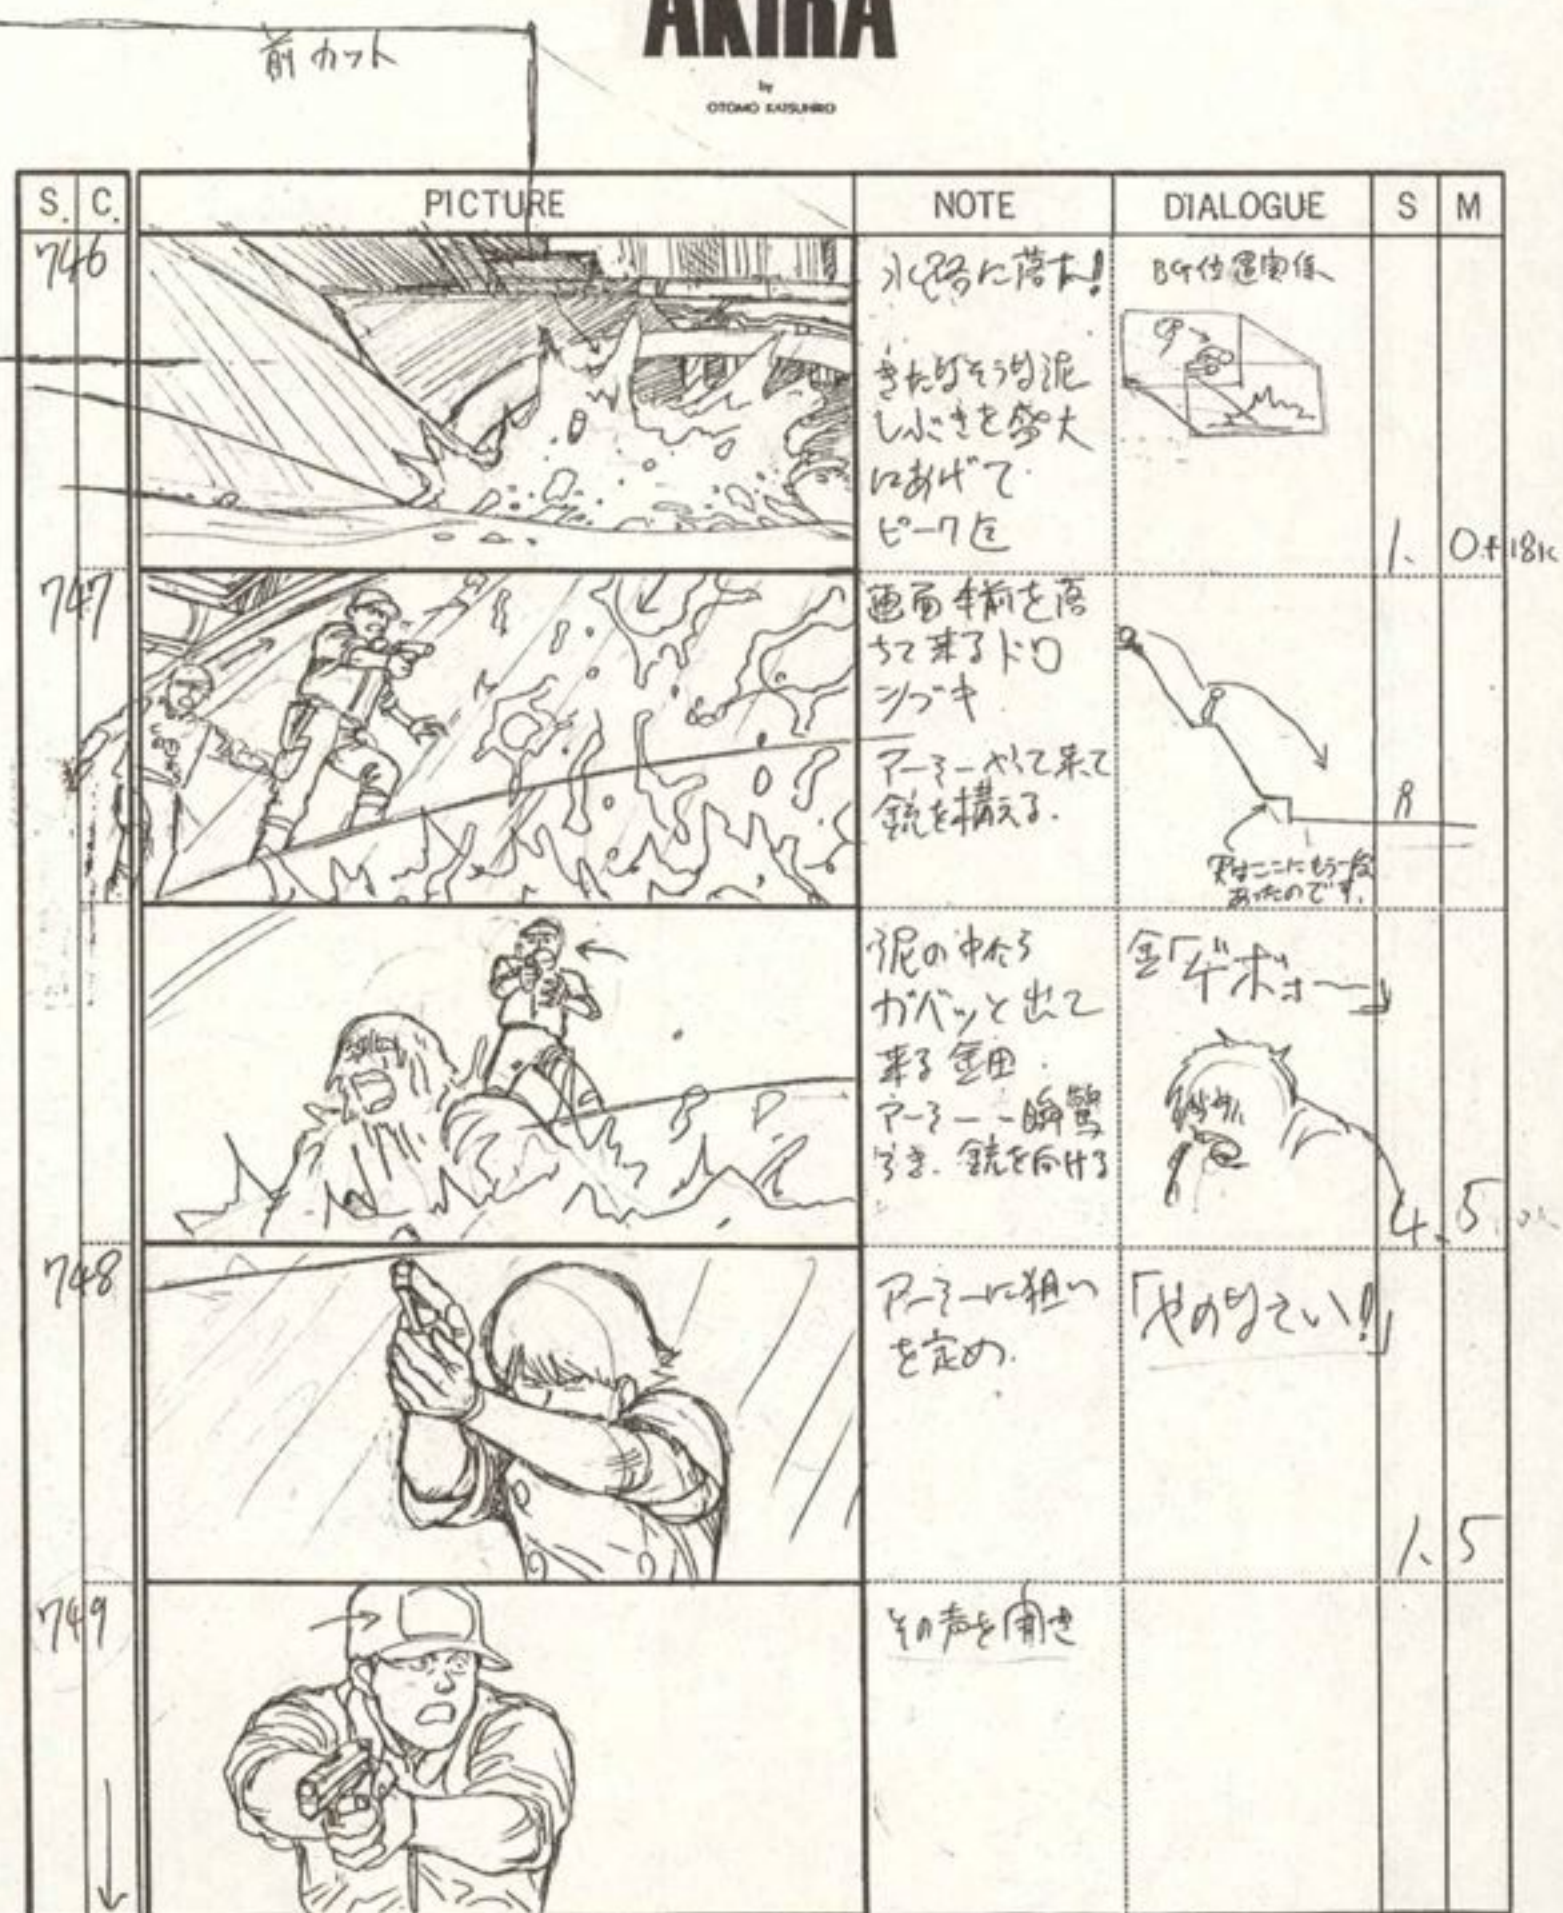 前カット
AKIRA
by
OTOMO KATSUHIRO
S. C. PICTURE NOTE DIALOGUE S M
746
水路に落た!
きたなそうな泥
しぶきを盛大
にあげて
ピーク迄
BG位置関係
1. 0+18K
747
画面手前を落
ちて来るドロ
シブキ
アーミーやって来て
銃を構える.
実はここにもう一段
あったのです.
泥の中から
ガバッと出て
来る金田.
アーミー一瞬驚
き.銃を向ける
金「ゲボォー」
4. 5
748
アーミーに狙い
を定め.
「やめなてい!」
1. 5
749
その声を聞き